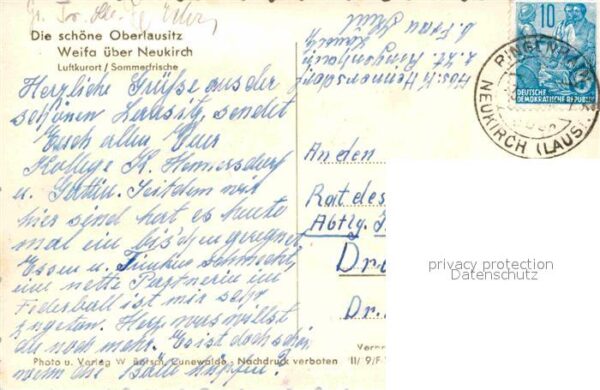 Die schöne Oberlausitz
Weifa über Neukirch
Luftkurort / Sommerfrische
Herzliche Grüße aus der
schönen Lausitz, sendet
Euch allen Euer
Kollege K. Hennersdorf
u. Gattin. Seitdem wir
hier sind hat es heute
mal ein bis'chen geregnet,
Essen u. Trinken schmeckt,
eine nette Partnerin im
Federball ist mir sehr
zugetan. Herz was willst
du noch mehr. Es ist doch schön
wenn die Bälle hüpfen!
Photo u. Verlag W. Bötsch, Cunewalde - Nachdruck verboten II/9/F
Abs: K. Hennersdorf
z. Zt. Ringenhain
Lausitz
b. Frau
10
DEUTSCHE
DEMOKRATISCHE REPUBLIK
RINGENHAIN
NEUKIRCH (LAUS.)
An den
Rat des
Abtlg.
Dr
privacy protection
Datenschutz